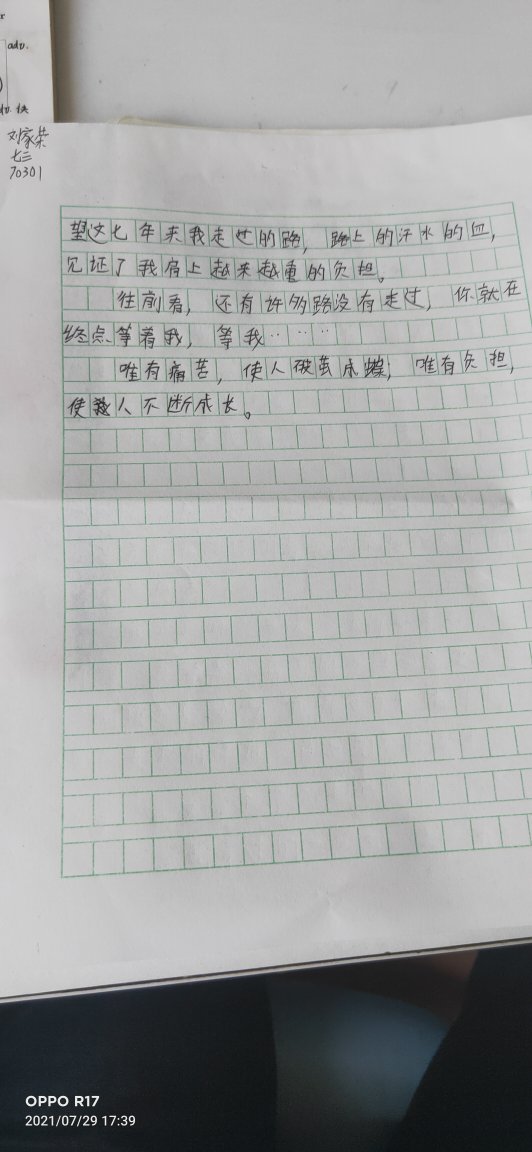 adv.
刘家荣
七三
70301
望这七年来我走过的路，路上的汗水的血，
见证了我肩上越来越重的负担。
往前看，还有许多路没有走过，你就在
终点等着我，等我……
唯有痛苦，使人破茧成蝶，唯有负担，
使人不断成长。
OPPO R17
2021/07/29 17:39